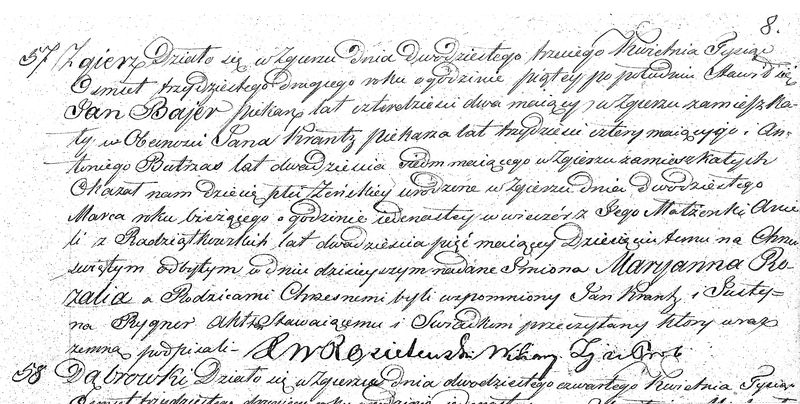 8.
57 Zgierz Działo się w Zgierzu Dnia Dwudziestego trzeciego Kwietnia Tysiąc
Osmset trzydziestego drugiego roku o godzinie piątey po południu Stawił się
Jan Bajer piekarz lat czterdzieści dwa maiący w Zgierzu zamieszka-
ły w Obecności Jana Krantz piekarza lat trzydzieści cztery maiącygo i An-
toniego Butrzas lat dwadzieścia siedm maiącego w Zgierzu zamieszkałych
Okazał nam dziecię płci Żeńskiey urodzone w Zgierzu dnia dwudziestego
Marca roku bieżącego o godzinie iedenastey w wieczór z Jego Małżonki Ame-
li z Radziątkowskich lat dwadzieścia pięć maiący Dziecięciu temu na Chrzcie
świętym odbytym w dniu dzisieyszym nadane Imiona Maryanna Ro-
zalia a Rodzicami Chrzesnemi byli wspomniony Jan Krantz i Justy-
na Rygner Akt Stawaiącemu i Swiadkom przeczytany który wraz
zemną podpisali - Wikary
58 Dąbrowki Działo się w Zgierzu dnia dwudziestego czwartego Kwietnia Tysiąc
Osmset trzydziestego drugiego roku o godzinie